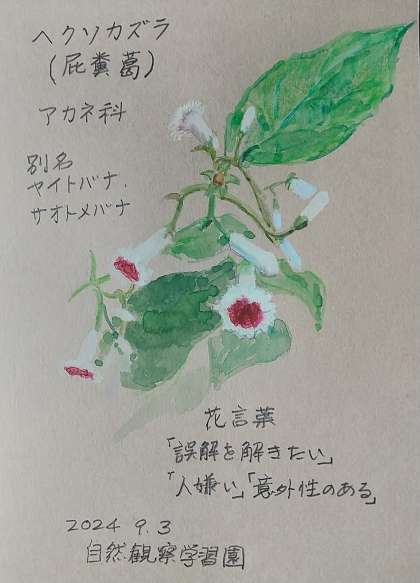 ヘクソカズラ
(屁糞葛)
アカネ科
別名
ヤイトバナ.
サオトメバナ
花言葉
「誤解を解きたい」
「人嫌い」「意外性のある」
2024 9.3
自然観察学習園